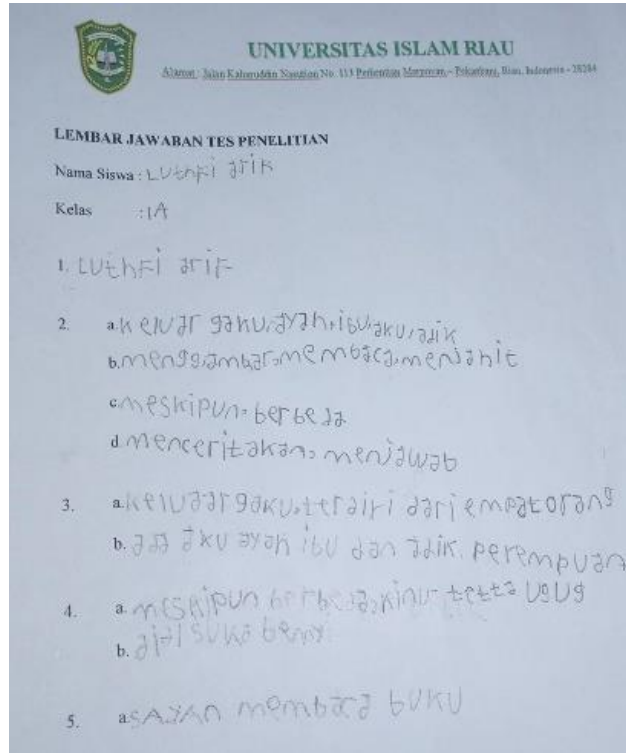 UNIVERSITAS ISLAM RIAU
Alamat : Jalan Kaharuddin Nasution No. 113 Perhentian Marpoyan – Pekanbaru, Riau, Indonesia – 28284
LEMBAR JAWABAN TES PENELITIAN
Nama Siswa : LUthFi arik
Kelas : 1A
1. LUthFi arif
2. a. keluar gaku, ayah, ibu, aku, adik
b. menggambar, membaca, menjahit
c. meskipun, berbeda
d. menceritakan, menjawab
3. a. keluaargaku, terdiri dari empat orang
b. ada aku ayah ibu dan adik perempuan
4. a. meskipun berbeda,
b. suka
5. a. membaca buku